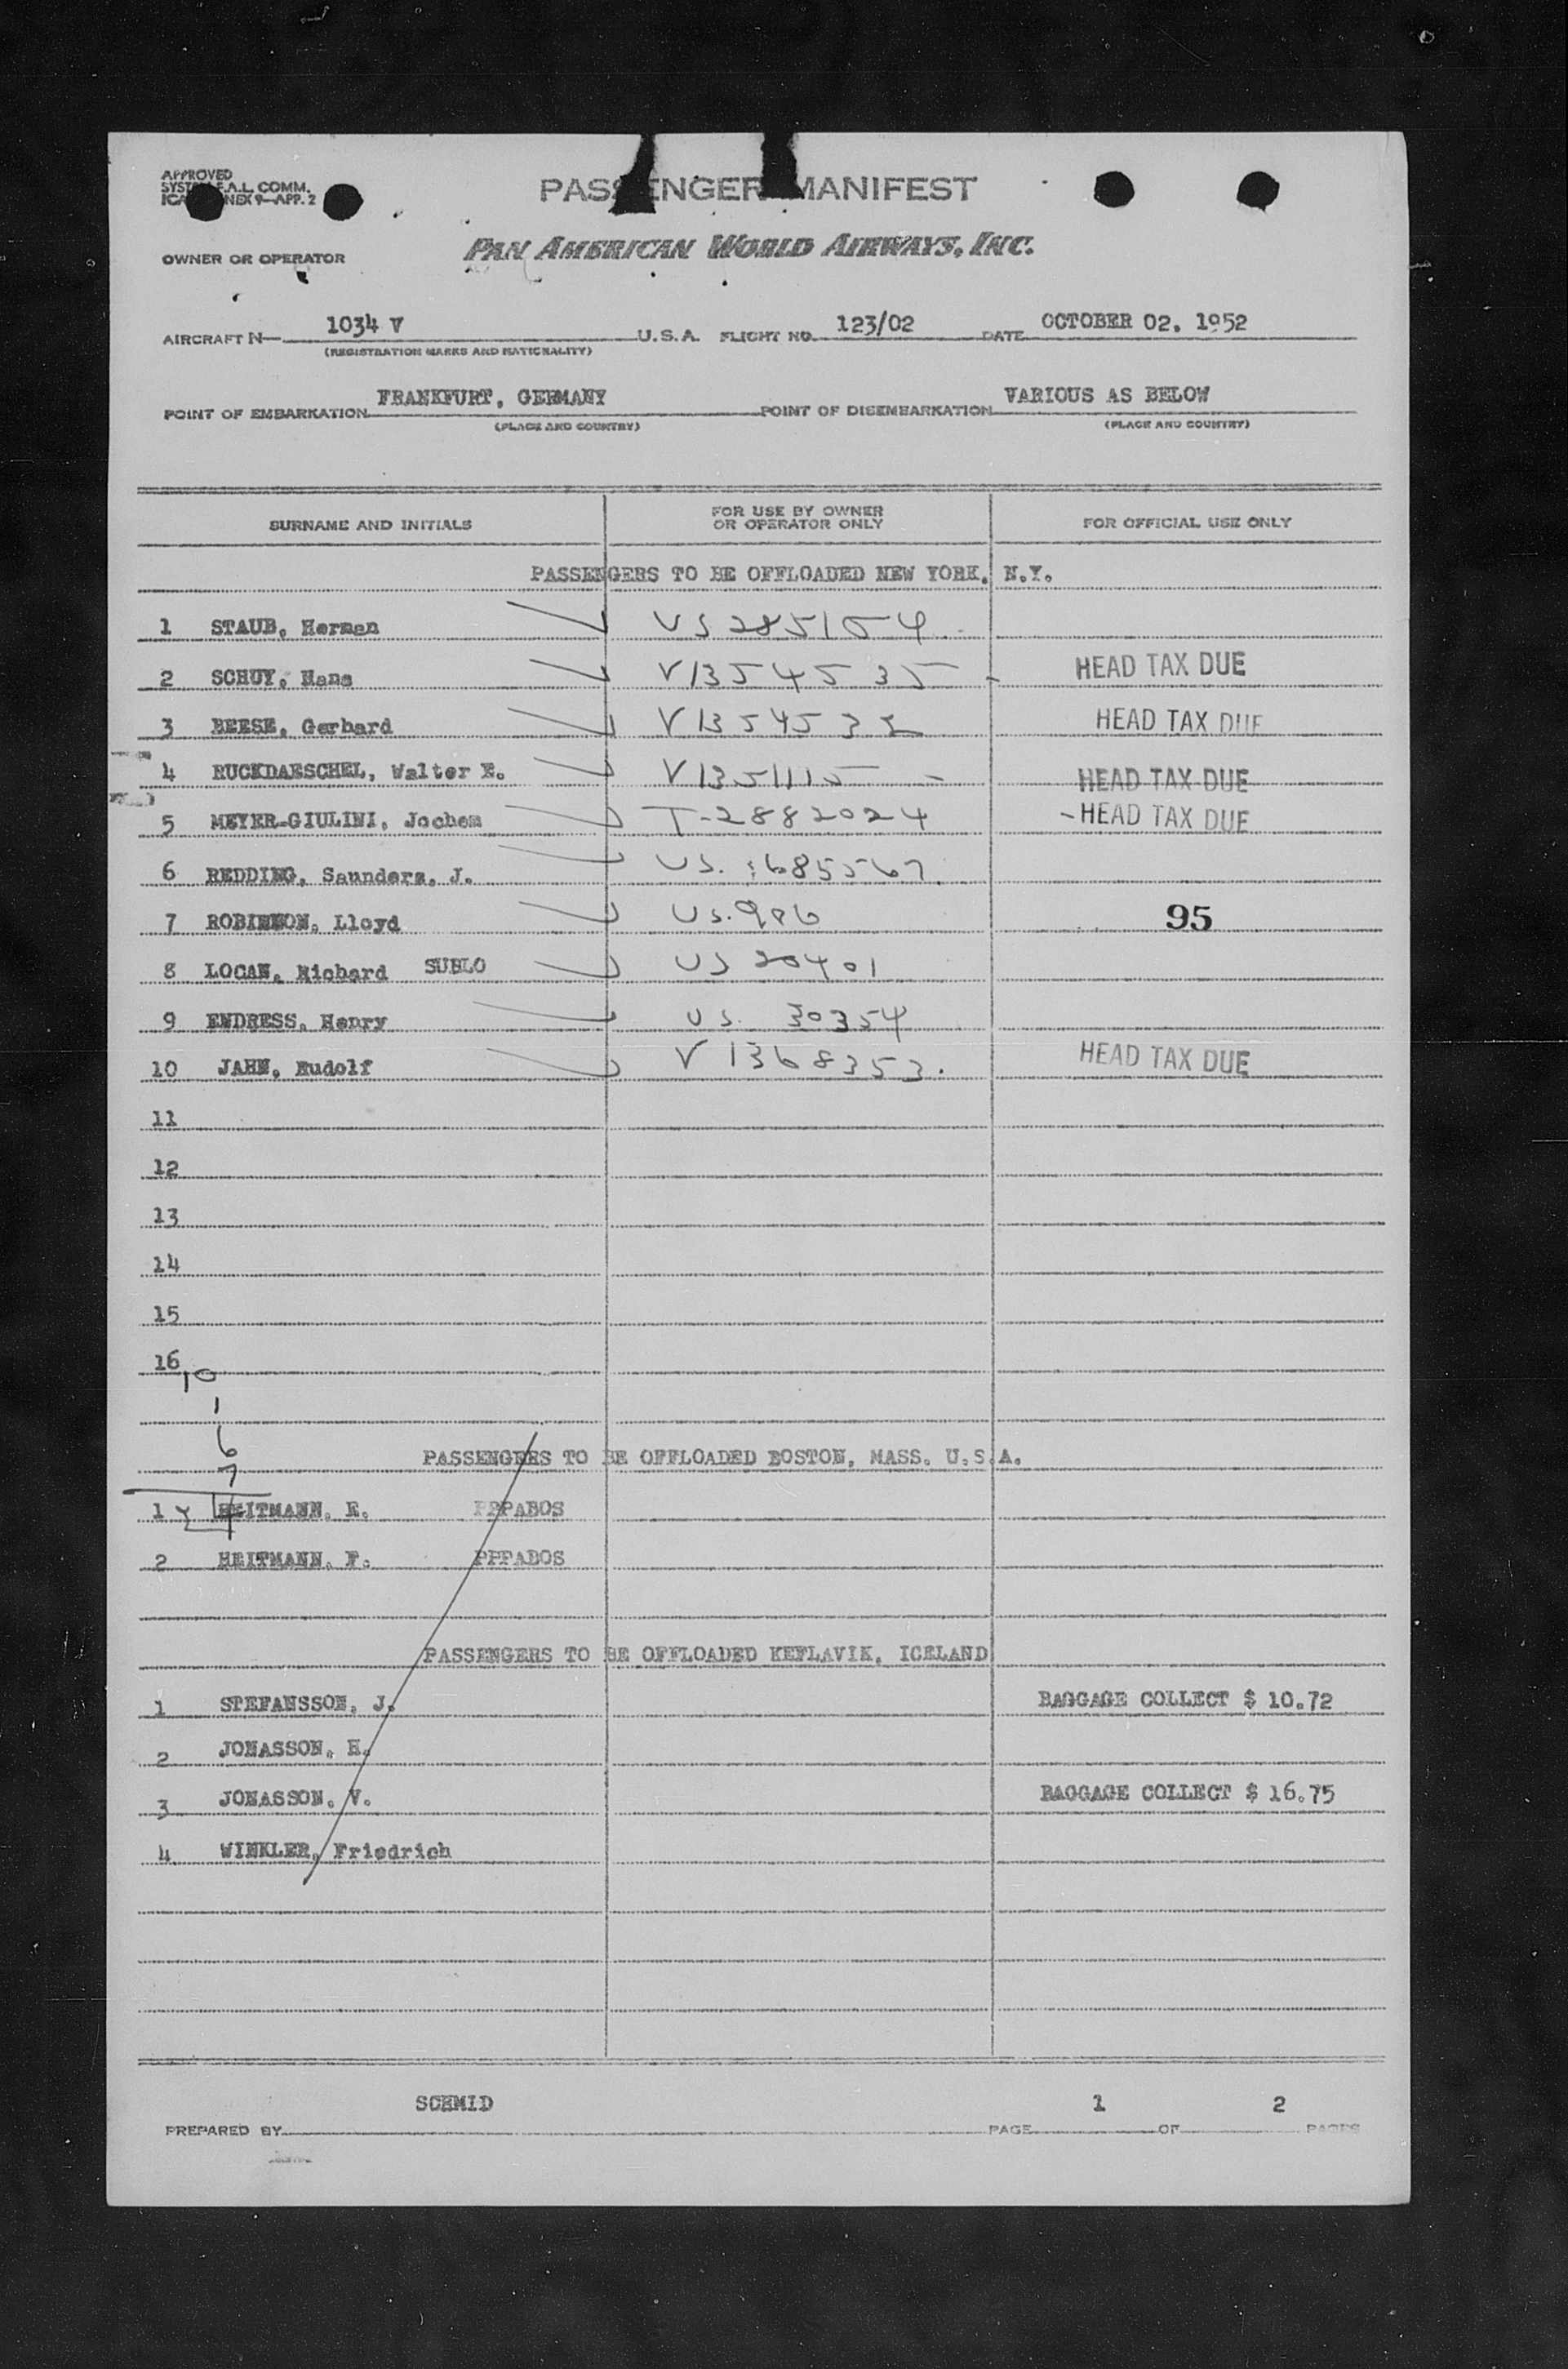 APPROVED
SYST F.A.L. COMM.
ICA NEX 9-APP. 2
PASSENGER MANIFEST
OWNER OR OPERATOR
PAN AMERICAN WORLD AIRWAYS, INC.
AIRCRAFT N 1034 V U.S.A. FLIGHT NO. 123/02 DATE OCTOBER 02, 1952
(REGISTRATION MARKS AND NATIONALITY)
POINT OF EMBARKATION FRANKFURT, GERMANY POINT OF DISEMBARKATION VARIOUS AS BELOW
(PLACE AND COUNTRY) (PLACE AND COUNTRY)
SURNAME AND INITIALS FOR USE BY OWNER OR OPERATOR ONLY FOR OFFICIAL USE ONLY
PASSENGERS TO BE OFFLOADED NEW YORK, N.Y.
1 STAUB, Herman US 285154
2 SCHUY, Hans V1354535 HEAD TAX DUE
3 BEESE, Gerhard HEAD TAX DUE
4 RUCKDAESCHEL, Walter E. V1351115 HEAD TAX DUE
5 MEYER-GIULINI, Jochem T-2882024 HEAD TAX DUE
6 REDDING, Saunders, J. US. 685567
7 ROBINSON, Lloyd US. 906 95
8 LOGAN, Richard SUBLO US 20401
9 ENDRESS, Henry US. 30354
10 JAHN, Rudolf V 1368353. HEAD TAX DUE
11
12
13
14
15
16
10
1
6
7
PASSENGERS TO BE OFFLOADED BOSTON, MASS. U.S.A.
1 HEITMANN, E. PPPABOS
2 HEITMANN, F. PPPABOS
PASSENGERS TO BE OFFLOADED KEFLAVIK, ICELAND
1 STEFANSSON, J. BAGGAGE COLLECT $ 10.72
2 JONASSON, H.
3 JONASSON, V. BAGGAGE COLLECT $ 16.75
4 WINKLER, Friedrich
PREPARED BY SCHMID PAGE 1 OF 2 PAGES